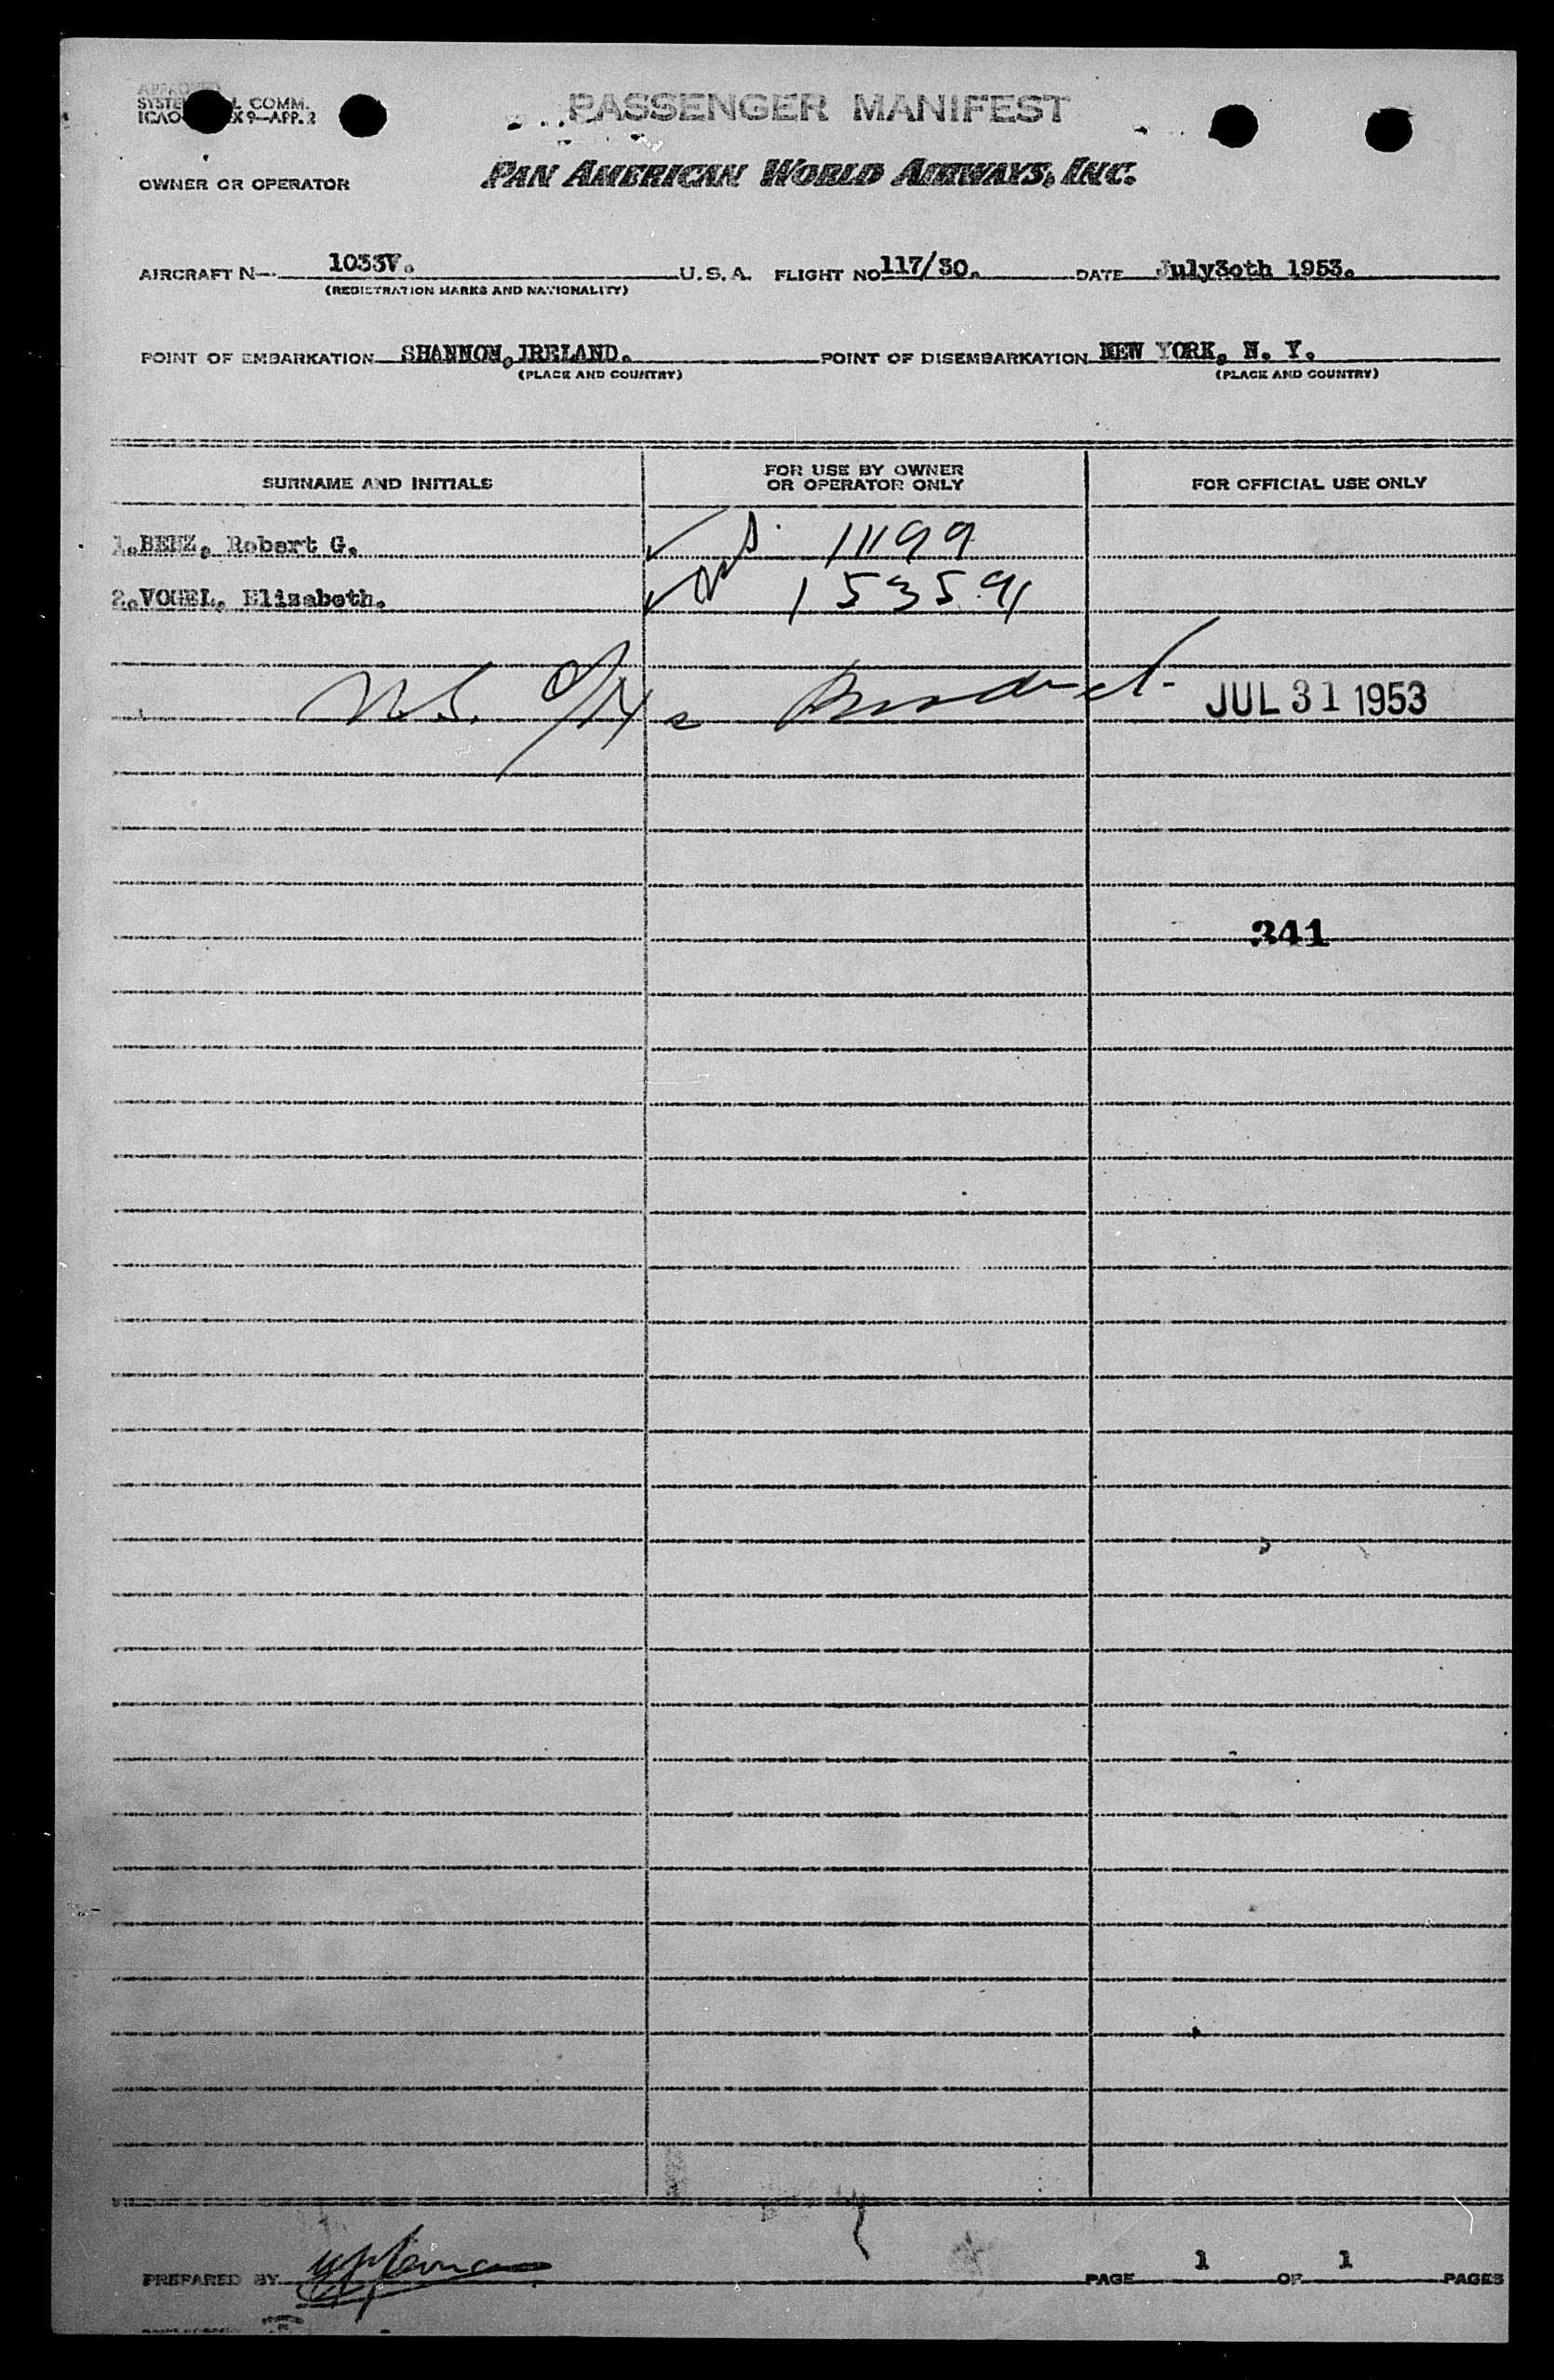 APPROVED
SYSTE L COMM.
ICAO X 9—APP. 2
PASSENGER MANIFEST
OWNER OR OPERATOR PAN AMERICAN WORLD AIRWAYS, INC.
AIRCRAFT N— 1033V. U.S.A. FLIGHT NO 117/30. DATE July3oth 1953.
(REGISTRATION MARKS AND NATIONALITY)
POINT OF EMBARKATION SHANNON, IRELAND. POINT OF DISEMBARKATION NEW YORK, N. Y.
(PLACE AND COUNTRY) (PLACE AND COUNTRY)
SURNAME AND INITIALS FOR USE BY OWNER OR OPERATOR ONLY FOR OFFICIAL USE ONLY
1. Robert G. 11199
2.VOGEL, Elizabeth. 153591
JUL 31 1953
341
PREPARED BY PAGE 1 OF 1 PAGES